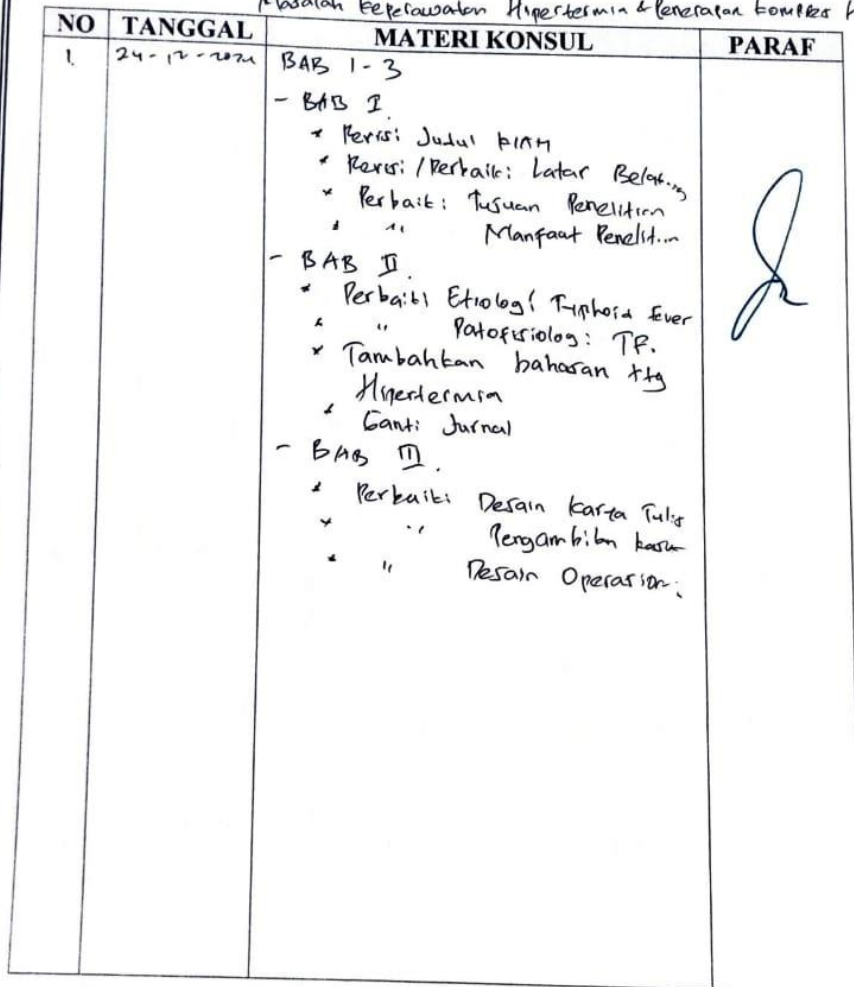 Masalah Keperawatan Hipertermia & Penerapan kompres
NO TANGGAL MATERI KONSUL PARAF
1. 24-12-2024 BAB 1-3
- BAB I
* Revisi Judul KIAN
* Revisi / Perbaiki Latar Belakang
* Perbaiki Tujuan Penelitian
* " Manfaat Penelitian
- BAB II.
* Perbaiki Etiologi Typhoid Fever
* " Patofisiologi TF.
* Tambahkan bahasan ttg
Hipertermia
* Ganti Jurnal
- BAB III.
* Perbaiki Desain Karya Tulis
* " Pengambilan kasus
* " Desain Operasion